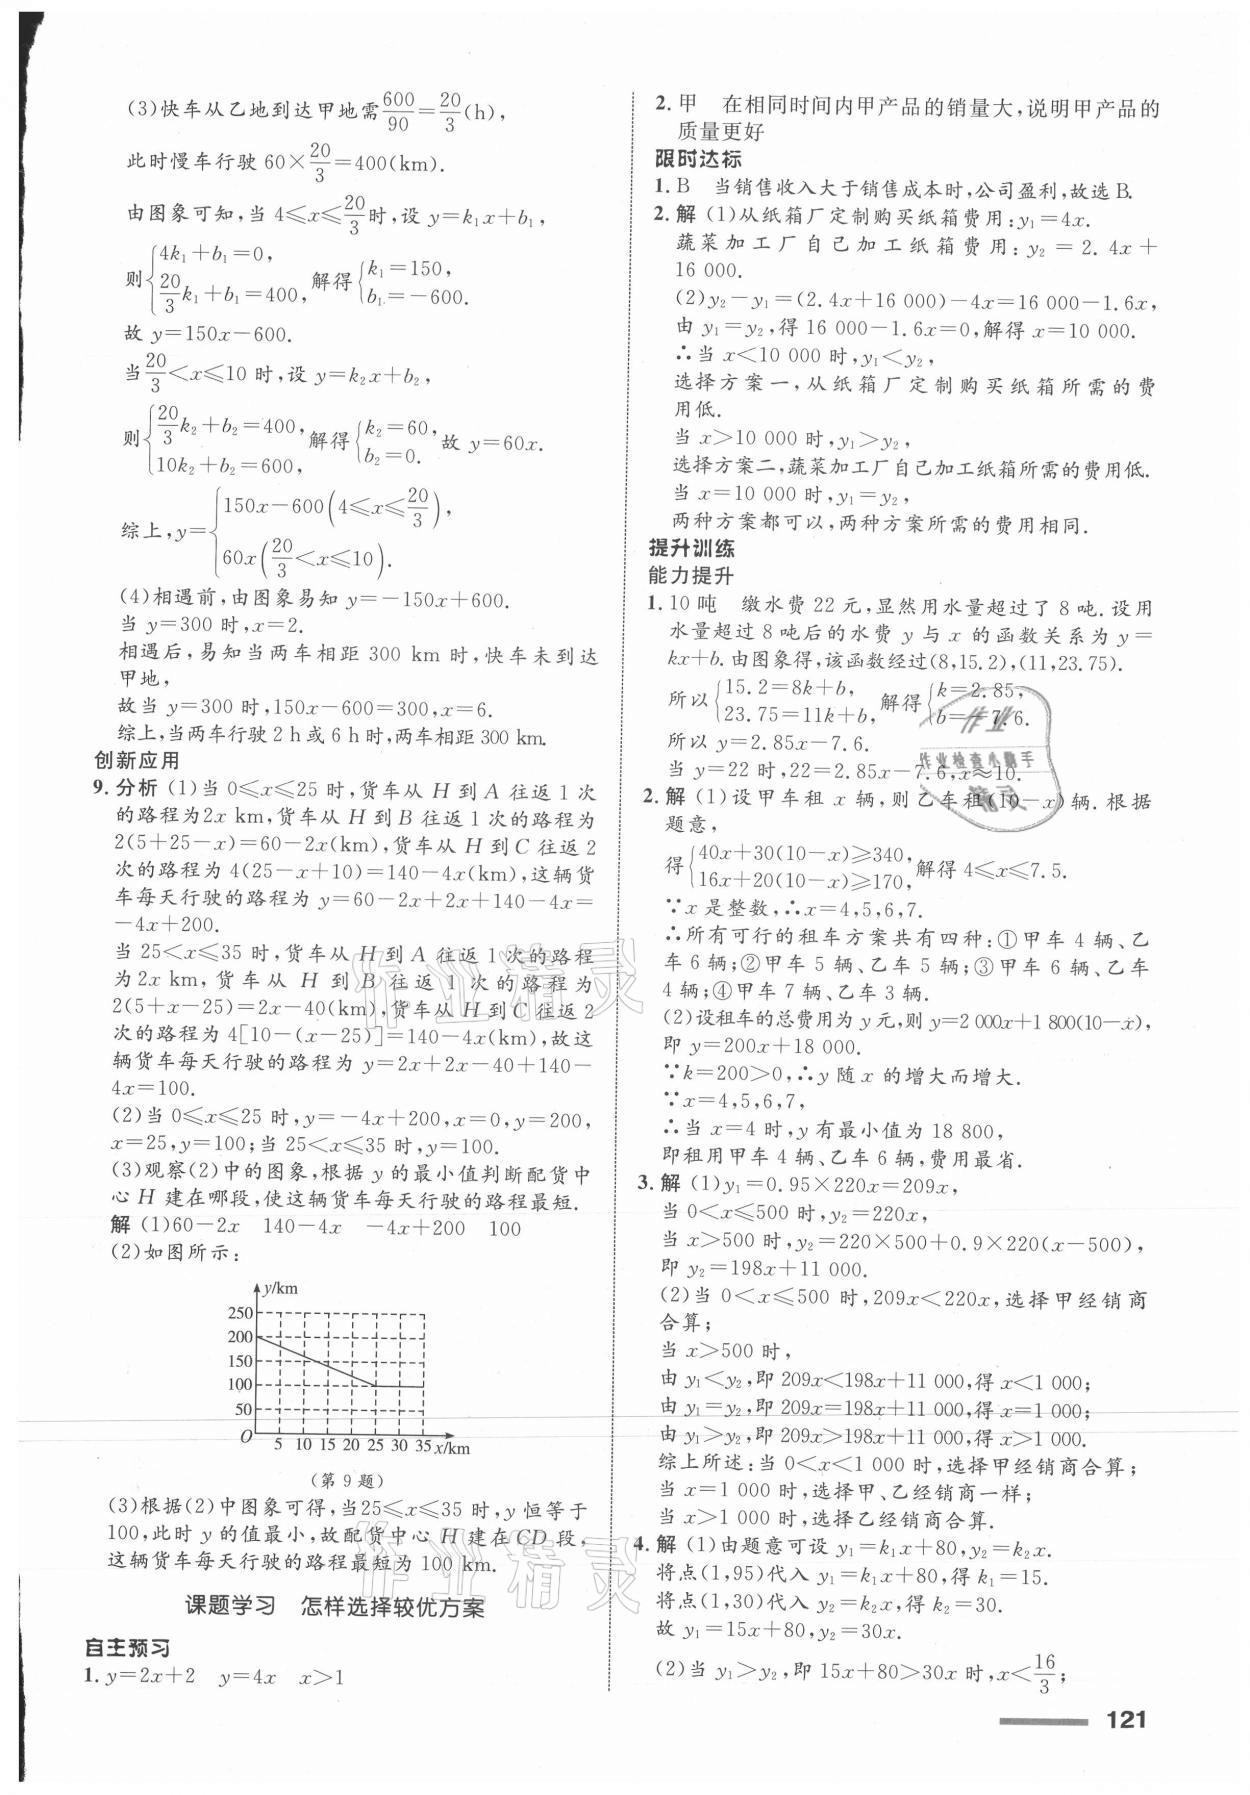 (3)快车从乙地到达甲地需600/90=20/3(h),
此时慢车行驶 60×20/3=400(km).
由图象可知,当 4≤x≤20/3时,设 y=k₁x+b₁,
则{4k₁+b₁=0, 20/3k₁+b₁=400,解得{k₁=150, b₁=-600.
故 y=150x-600.
当20/3<x≤10 时,设 y=k₂x+b₂,
则{20/3k₂+b₂=400, 10k₂+b₂=600,解得{k₂=60, b₂=0.故 y=60x.
综上,y={150x-600(4≤x≤20/3), 60x(20/3<x≤10).
(4)相遇前,由图象易知 y=-150x+600.
当 y=300 时,x=2.
相遇后,易知当两车相距 300 km 时,快车未到达
甲地,
故当 y=300 时,150x-600=300,x=6.
综上,当两车行驶 2 h 或 6 h 时,两车相距 300 km.
创新应用
9.分析 (1)当 0≤x≤25 时,货车从 H 到 A 往返 1 次
的路程为2x km,货车从 H 到 B 往返 1 次的路程为
2(5+25-x)=60-2x(km),货车从 H 到 C 往返 2
次的路程为 4(25-x+10)=140-4x(km),这辆货
车每天行驶的路程为 y=60-2x+2x+140-4x=
-4x+200.
当 25<x≤35 时,货车从 H 到 A 往返 1 次的路程
为2x km,货车从 H 到 B 往返 1 次的路程为
2(5+x-25)=2x-40(km),货车从 H 到 C 往返 2
次的路程为 4[10-(x-25)]=140-4x(km),故这
辆货车每天行驶的路程为 y=2x+2x-40+140-
4x=100.
(2)当 0≤x≤25 时,y=-4x+200,x=0,y=200,
x=25,y=100;当 25<x≤35 时,y=100.
(3)观察(2)中的图象,根据 y 的最小值判断配货中
心 H 建在哪段,使这辆货车每天行驶的路程最短.
解 (1)60-2x 140-4x -4x+200 100
(2)如图所示:
y/km
250
200
150
100
50
O 5 10 15 20 25 30 35 x/km
(第 9 题)
(3)根据(2)中图象可得,当25≤x≤35 时,y 恒等于
100,此时 y 的值最小,故配货中心 H 建在 CD 段,
这辆货车每天行驶的路程最短为 100 km.
课题学习 怎样选择较优方案
自主预习
1. y=2x+2 y=4x x>1
2. 甲 在相同时间内甲产品的销量大,说明甲产品的
质量更好
限时达标
1. B 当销售收入大于销售成本时,公司盈利,故选 B.
2. 解 (1)从纸箱厂定制购买纸箱费用:y₁=4x.
蔬菜加工厂自己加工纸箱费用:y₂=2.4x+
16 000.
(2)y₂-y₁=(2.4x+16 000)-4x=16 000-1.6x,
由 y₁=y₂,得 16 000-1.6x=0,解得 x=10 000.
∴当 x<10 000 时,y₁<y₂,
选择方案一,从纸箱厂定制购买纸箱所需的费
用低.
当 x>10 000 时,y₁>y₂,
选择方案二,蔬菜加工厂自己加工纸箱所需的费用低.
当 x=10 000 时,y₁=y₂,
两种方案都可以,两种方案所需的费用相同.
提升训练
能力提升
1. 10 吨 缴水费 22 元,显然用水量超过了 8 吨.设用
水量超过 8 吨后的水费 y 与 x 的函数关系为 y=
kx+b.由图象得,该函数经过(8,15.2),(11,23.75).
所以{15.2=8k+b, 23.75=11k+b,解得{k=2.85, b=-7.6.
所以 y=2.85x-7.6.
当 y=22 时,22=2.85x-7.6,x≈10.
2. 解 (1)设甲车租 x 辆,则乙车租(10-x)辆.根据
题意,
得{40x+30(10-x)≥340, 16x+20(10-x)≥170,解得 4≤x≤7.5.
∵x 是整数,∴x=4,5,6,7.
∴所有可行的租车方案共有四种:①甲车 4 辆、乙
车 6 辆;②甲车 5 辆、乙车 5 辆;③甲车 6 辆、乙车
4 辆;④甲车 7 辆、乙车 3 辆.
(2)设租车的总费用为 y 元,则 y=2 000x+1 800(10-x),
即 y=200x+18 000.
∵k=200>0,∴y 随 x 的增大而增大.
∵x=4,5,6,7,
∴当 x=4 时,y 有最小值为 18 800,
即租用甲车 4 辆、乙车 6 辆,费用最省.
3. 解 (1)y₁=0.95×220x=209x,
当 0<x≤500 时,y₂=220x,
当 x>500 时,y₂=220×500+0.9×220(x-500),
即 y₂=198x+11 000.
(2)当 0<x≤500 时,209x<220x,选择甲经销商
合算;
当 x>500 时,
由 y₁<y₂,即 209x<198x+11 000,得 x<1 000;
由 y₁=y₂,即 209x=198x+11 000,得 x=1 000;
由 y₁>y₂,即 209x>198x+11 000,得 x>1 000.
综上所述:当 0<x<1 000 时,选择甲经销商合算;
当 x=1 000 时,选择甲、乙经销商一样;
当 x>1 000 时,选择乙经销商合算.
4. 解 (1)由题意可设 y₁=k₁x+80,y₂=k₂x.
将点(1,95)代入 y₁=k₁x+80,得 k₁=15.
将点(1,30)代入 y₂=k₂x,得 k₂=30.
故 y₁=15x+80,y₂=30x.
(2)当 y₁>y₂,即 15x+80>30x 时,x<16/3;
121
作业精灵
作业精灵
作业
作业检查小助手
精灵